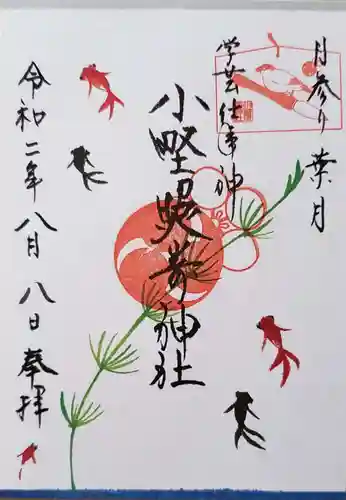 月参り 葉月
学芸仕事神
小野照崎神社
令和二年八月八日 奉拝